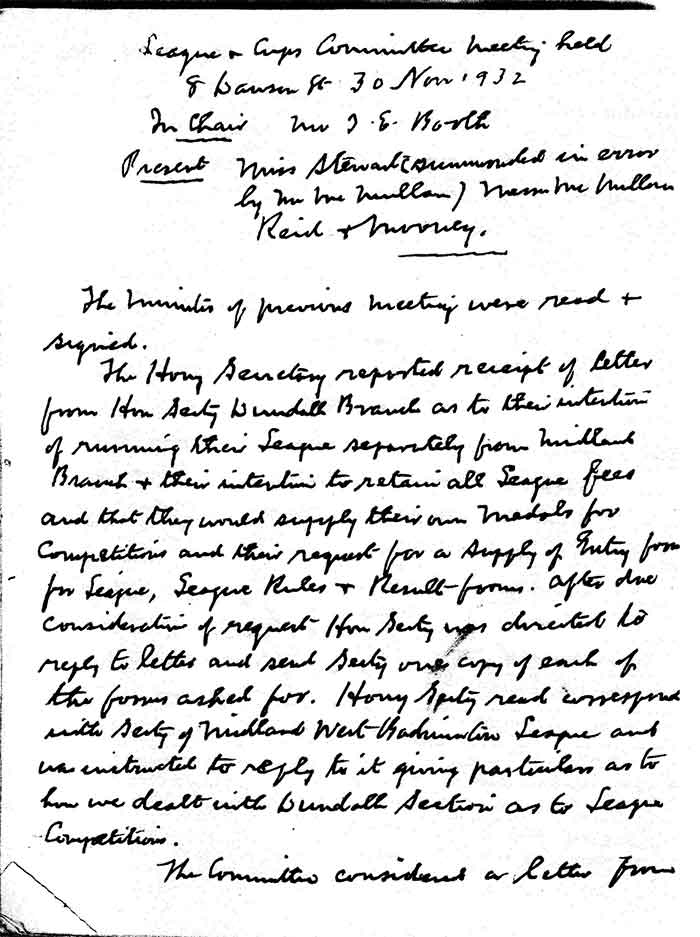 League & Cups Committee Meeting held
8 Dawson St 30 Nov 1932
In Chair Mr J. E. Booth
Present Miss Stewart (summonded in error
by Mr McMullan) Messrs McMullan
Reid & Mooney.
The Minutes of previous meeting were read &
signed.
The Hony Secretary reported receipt of letter
from Hon Secty Dundalk Branch as to their intention
of running their League separately from Midland
Branch & their intention to retain all League fees
and that they would supply their own Medals for
Competitions and their request for a supply of Entry forms
for League, League Rules & Result forms. After due
consideration of request Hon Secty was directed to
reply to letter and send Secty one copy of each of
the forms asked for. Hony Secty read correspond
with Secty of Midland West Badminton League and
was instructed to reply to it giving particulars as to
how we dealt with Dundalk Section as to League
Competitions.
The Committee considered a letter from